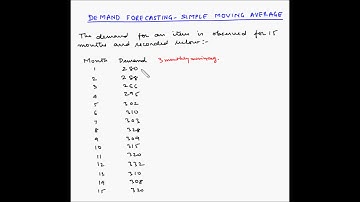 DEMAND FORECASTING - SIMPLE MOVING AVERAGE
The demand for an item is observed for 15
months and recorded below:-
Month Demand 3 monthly moving avg.
1 280
2 288
3 266
4 295
5 302
6 310
7 303
8 328
9 309
10 315
11 320
12 332
13 310
14 308
15 320